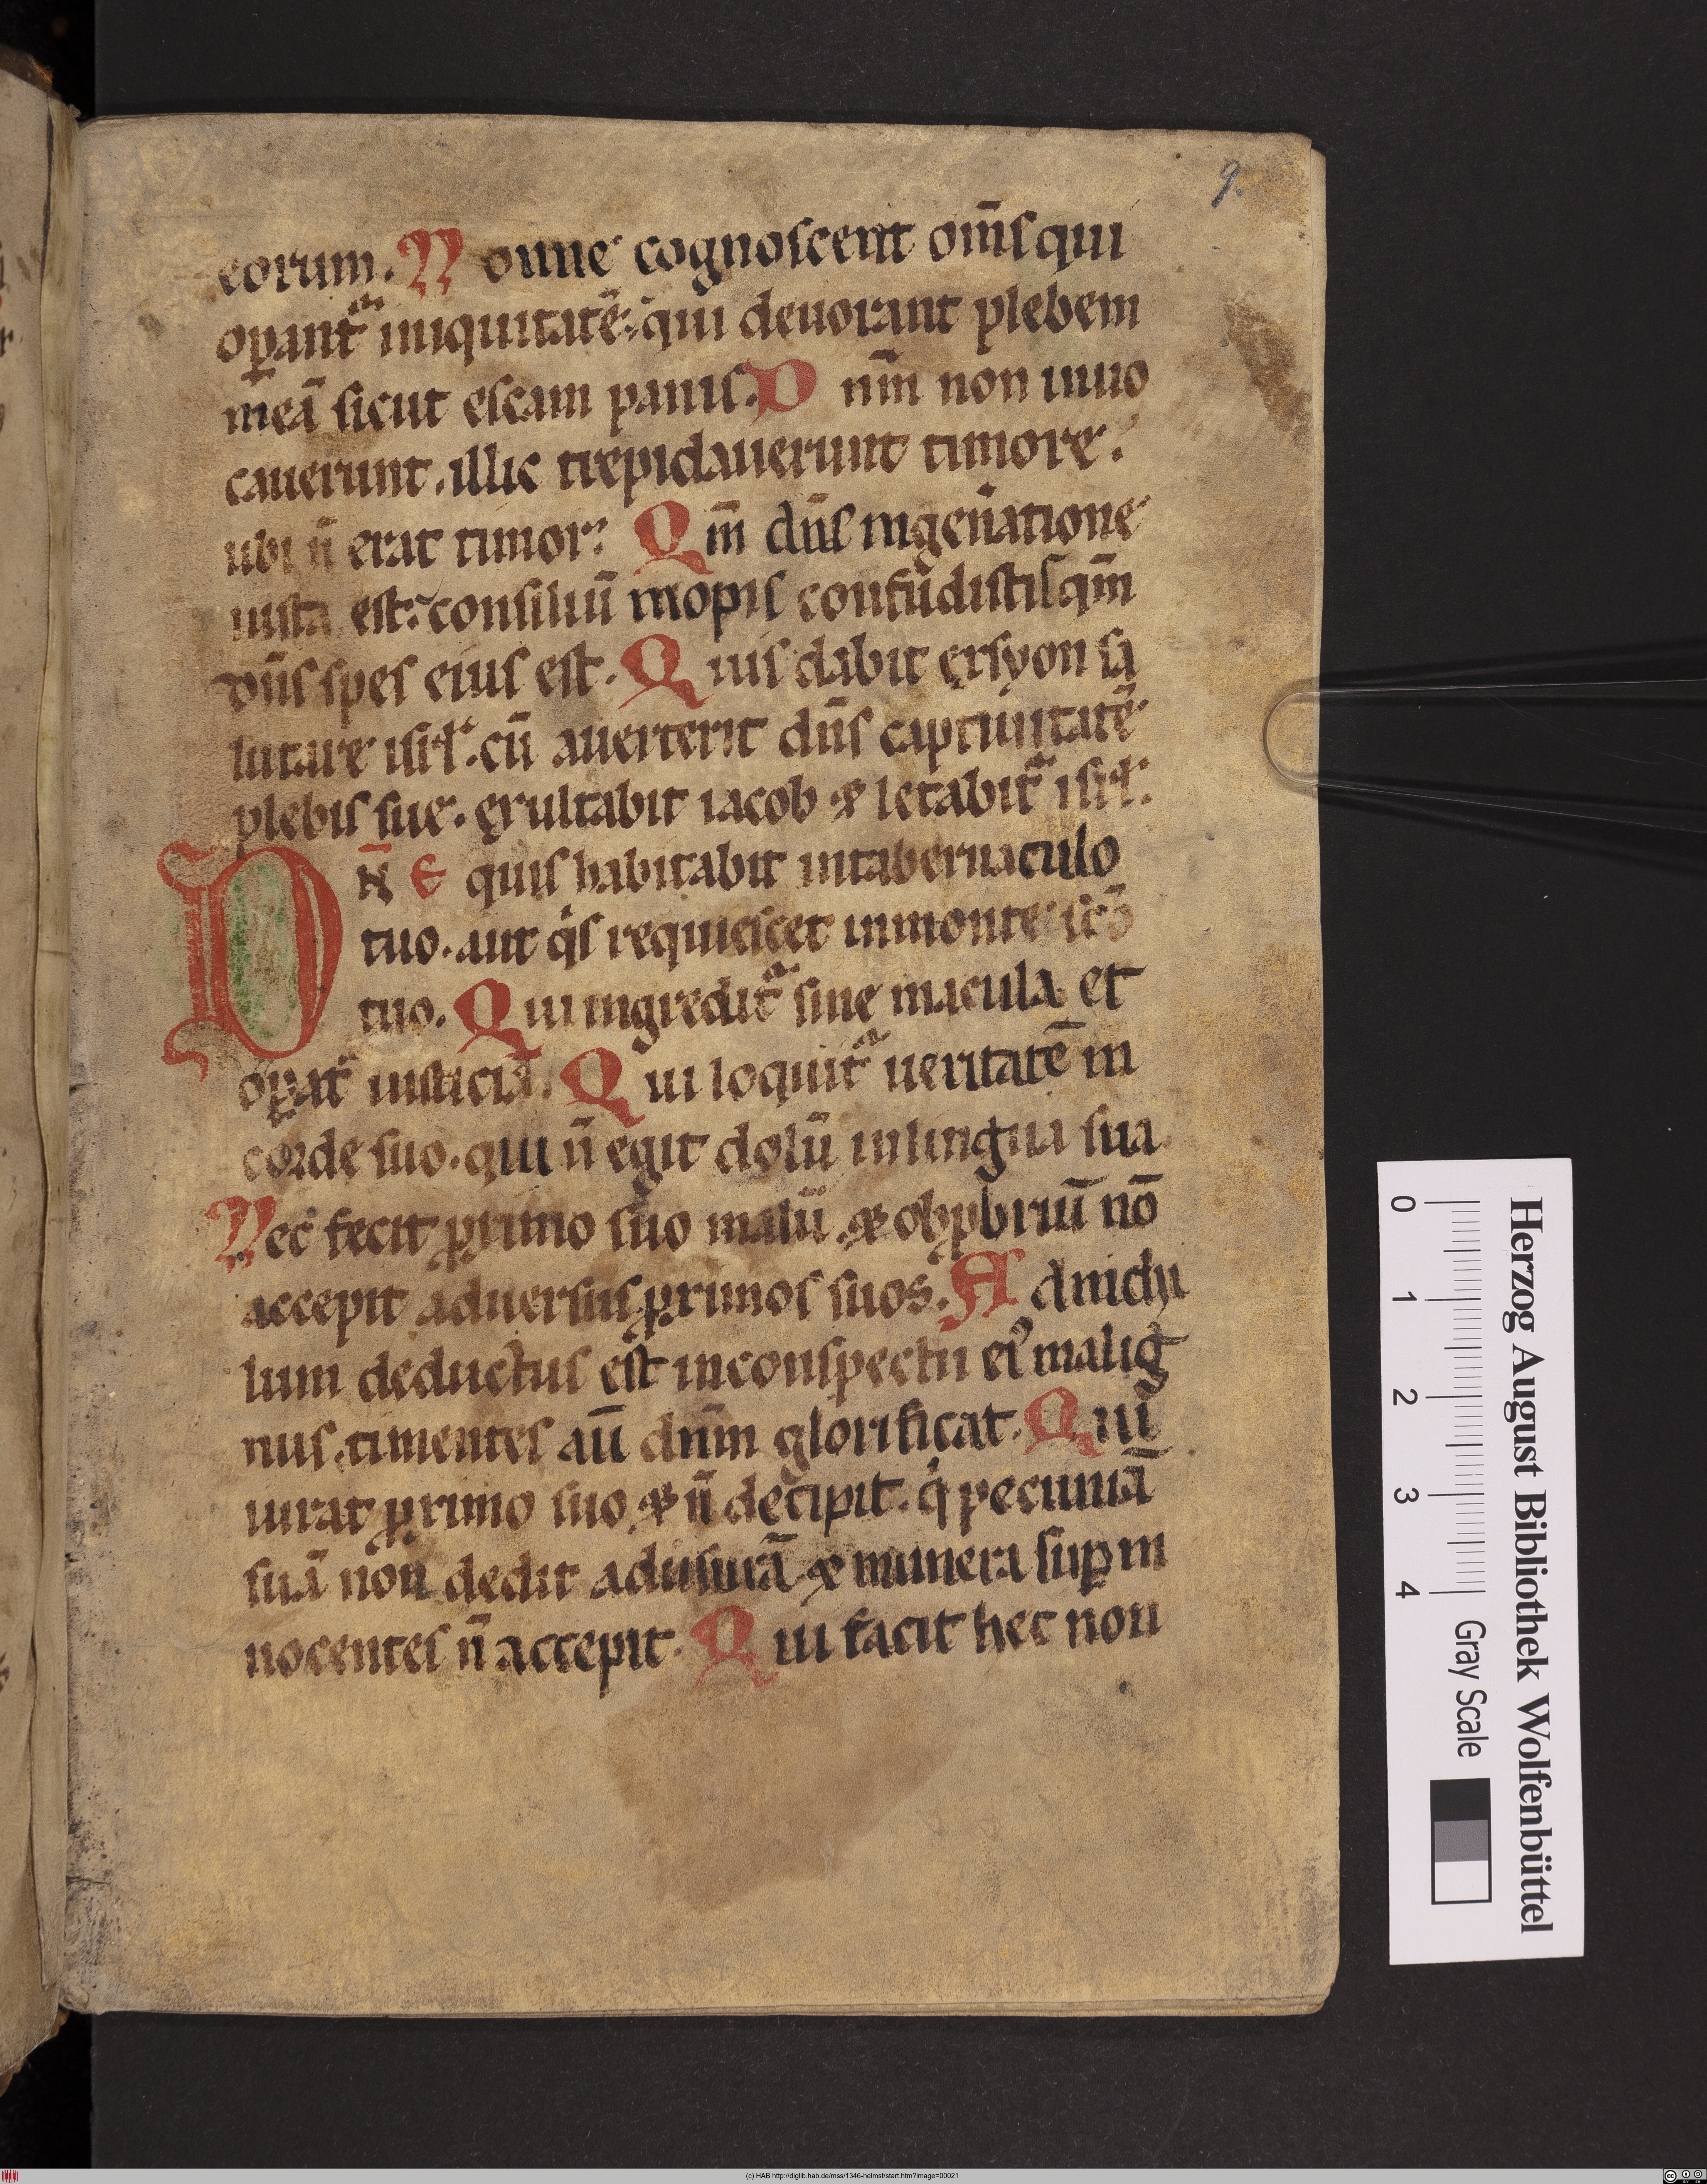 9.
eorum. Nonne cognoscent om̅s qui
oꝑant᷑ iniquitatē. qui deuorant plebem
meā sicut escam panis. Dn̅m non inuo
cauerunt. illic trepidauerunt timore.
ubi n̅ erat timor. Qm̅ dn̅s ingen̅atione
iusta est. consiliū inopis confūdistis qm̅
dn̅s spes eius est. Quis dabit ex syon sa
lutare isrl̅. cū auerterit dn̅s captiuitatē
plebis sue. exultabit iacob & letabit᷑ isrl̅.
DN̅E quis habitabit in tabernaculo
tuo. aut qͥs requiescet in monte sc̅o
tuo. Qui ingredit᷑ sine macula et
oꝑat᷑ iusticiā. Qui loquit᷑ ueritatē in
corde suo. qui n̅ egit dolū in lingua sua
Nec fecit ꝓximo suo malū. & obꝓbriū nō
accepit aduersus ꝓximos suos. Ad nichi
lum deductus est in conspectu eiꝰ malig
nus. timentes aū dn̅m glorificat. Qui
iurat ꝓximo suo & n̅ decipit. qͥ pecuniā
suā non dedit ad usurā & munera suꝑ in
nocentes n̅ accepit. Qui facit hec non
Herzog August Bibliothek Wolfenbüttel
0 1 2 3 4 Gray Scale
(c) HAB http://diglib.hab.de/mss/1346-helmst/start.htm?image=00021